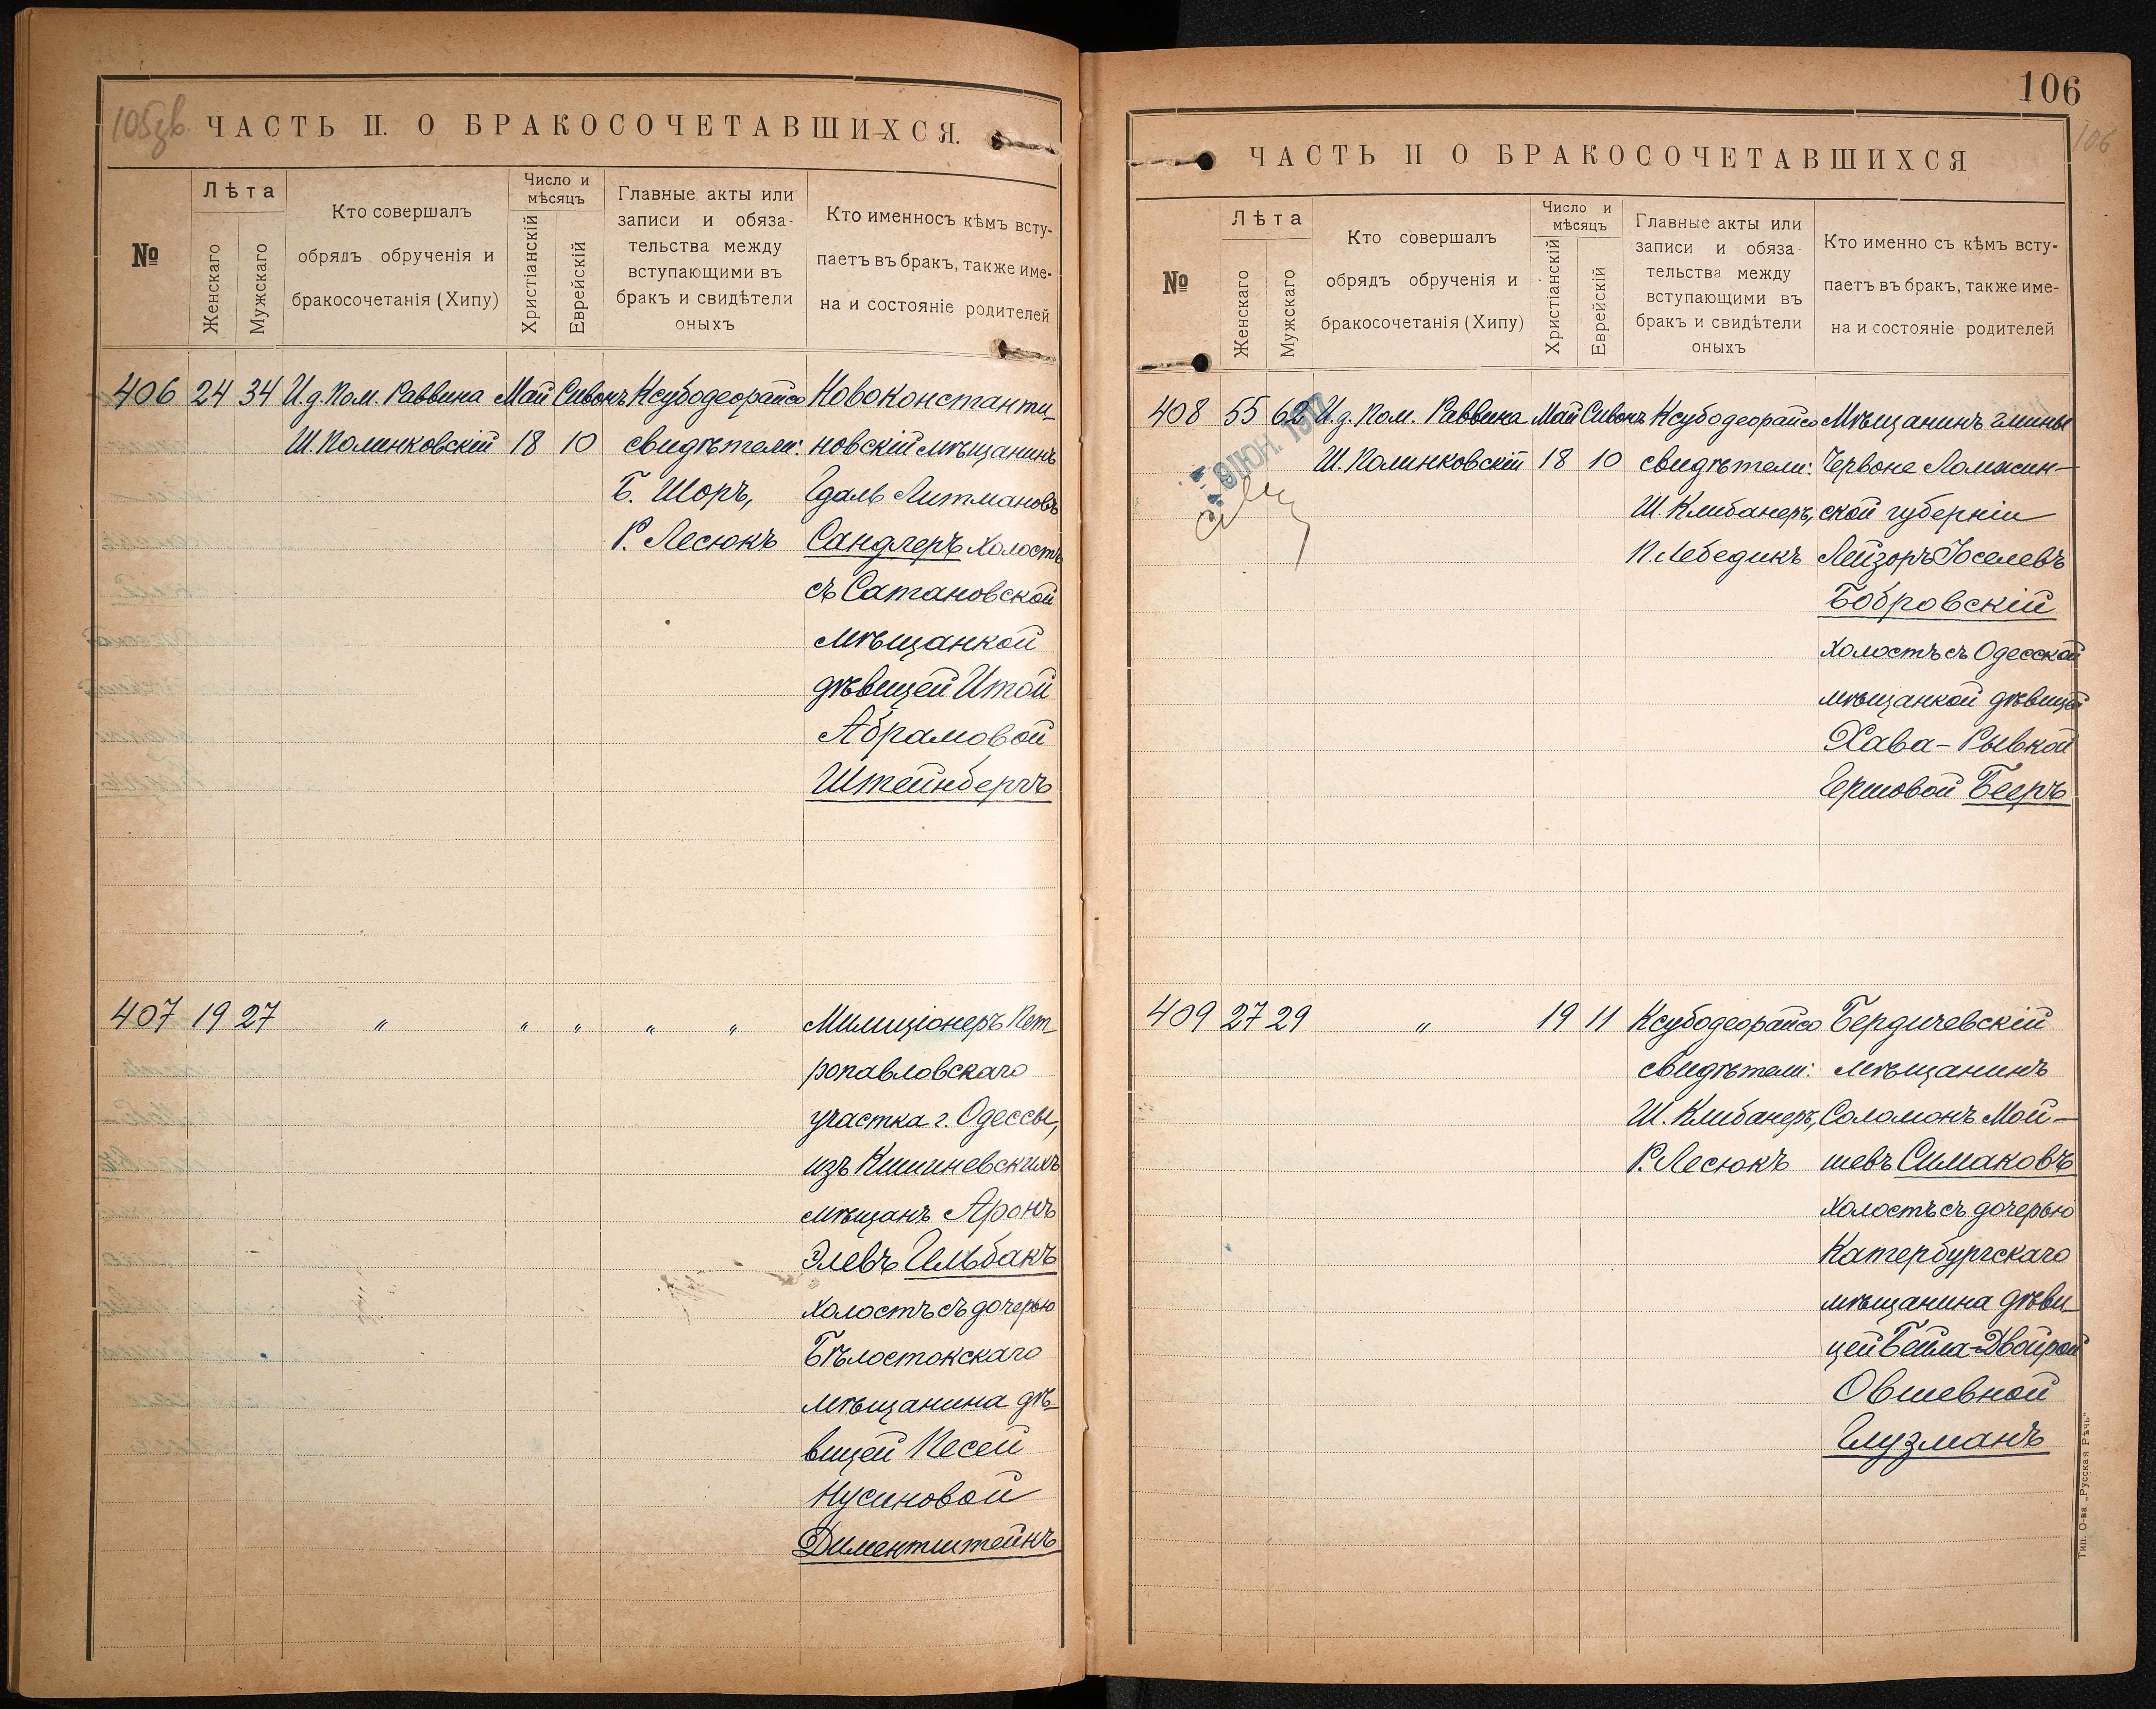 105об.
ЧАСТЬ II. О БРАКОСОЧЕТАВШИХСЯ.
№
Лѣта
Женскаго
Мужскаго
Кто совершалъ
обрядъ обрученія и
бракосочетанія (Хипу)
Число и
мѣсяцъ
Христіанскій
Еврейскій
Главные акты или
записи и обяза-
тельства между
вступающими въ
бракъ и свидѣтели
оныхъ
Кто именно съ кѣмъ всту-
паетъ въ бракъ, также име-
на и состояніе родителей
406 24 34 И.д. Пом. Раввина Май Сивонъ Ксубодеорайсо Новоконстанти-
Ш. Полинковскій 18 10 свидѣтели: новскій мѣщанинъ
Б. Шоръ, Гдаль Литмановъ
Р. Лесюкъ Сандлеръ холостъ
съ Сатановской
мѣщанкой
дѣвицей Итой
Абрамовой
Штейнбергъ
407 19 27 " " " " " Милиціонеръ Пет-
ропавловскаго
участка г. Одессы,
изъ Кишиневскихъ
мѣщанъ Аронъ
Элевъ Гельбакъ
холостъ съ дочерью
Бѣлостокскаго
мѣщанина дѣ-
вицей Песей
Нусиновой
Диментштейнъ
106
106
ЧАСТЬ II О БРАКОСОЧЕТАВШИХСЯ
№
Лѣта
Женскаго
Мужскаго
Кто совершалъ
обрядъ обрученія и
бракосочетанія (Хипу)
Число и
мѣсяцъ
Христіанскій
Еврейскій
Главные акты или
записи и обяза
тельства между
вступающими въ
бракъ и свидѣтели
оныхъ
Кто именно съ кѣмъ всту-
паетъ въ бракъ, также име-
на и состояніе родителей
408 55 62 И.д. Пом. Раввина Май Сивонъ Ксубодеорайсо Мѣщанинъ гмины
Ш. Полинковскій 18 10 свидѣтели: Червоне Ломжин-
Ш. Клибанеръ, ской губерніи
П. Лебедикъ Лейзоръ Іоселевъ
Бобровскій
холостъ съ Одесской
мѣщанкой дѣвицей
Хава-Рывкой
Гершовой Бееръ
ІЮН. 1917
409 27 29 " 19 11 Ксубодеорайсо Бердичевскій
свидѣтели: мѣщанинъ
Ш. Клибанеръ, Соломонъ Мой-
Р. Лесюкъ шевъ Симаковъ
холостъ съ дочерью
Катербургскаго
мѣщанина дѣви-
цей Бейла-Двойрой
Овшевной
Глузманъ
Тип. О-ва „Русская Рѣчь"